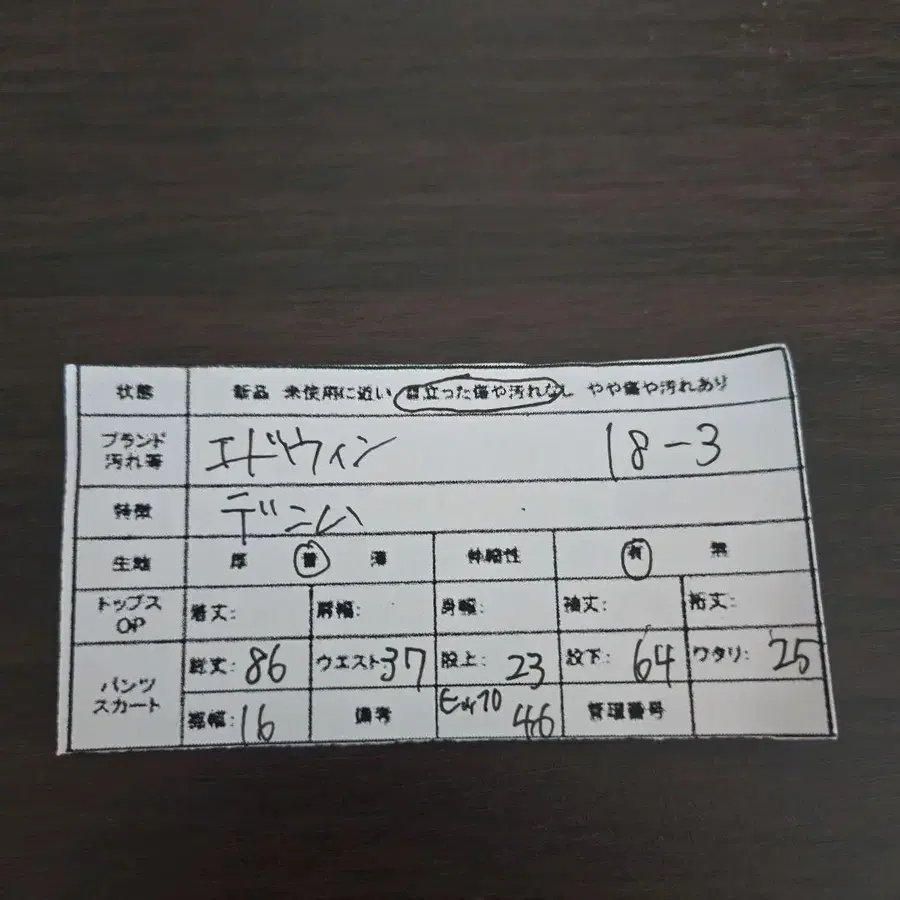 状態 新品 未使用に近い 目立った傷や汚れなし やや傷や汚れあり
ブランド
汚れ等 エドウィン 18-3
特徴 デニム
生地 厚 普 薄 伸縮性 有 無
トップス
OP 着丈: 肩幅: 身幅: 袖丈: 裄丈:
パンツ
スカート 総丈: 86 ウエスト37 股上: 23 股下: 64 ワタリ: 25
裾幅: 16 備考 ヒップ 46 管理番号